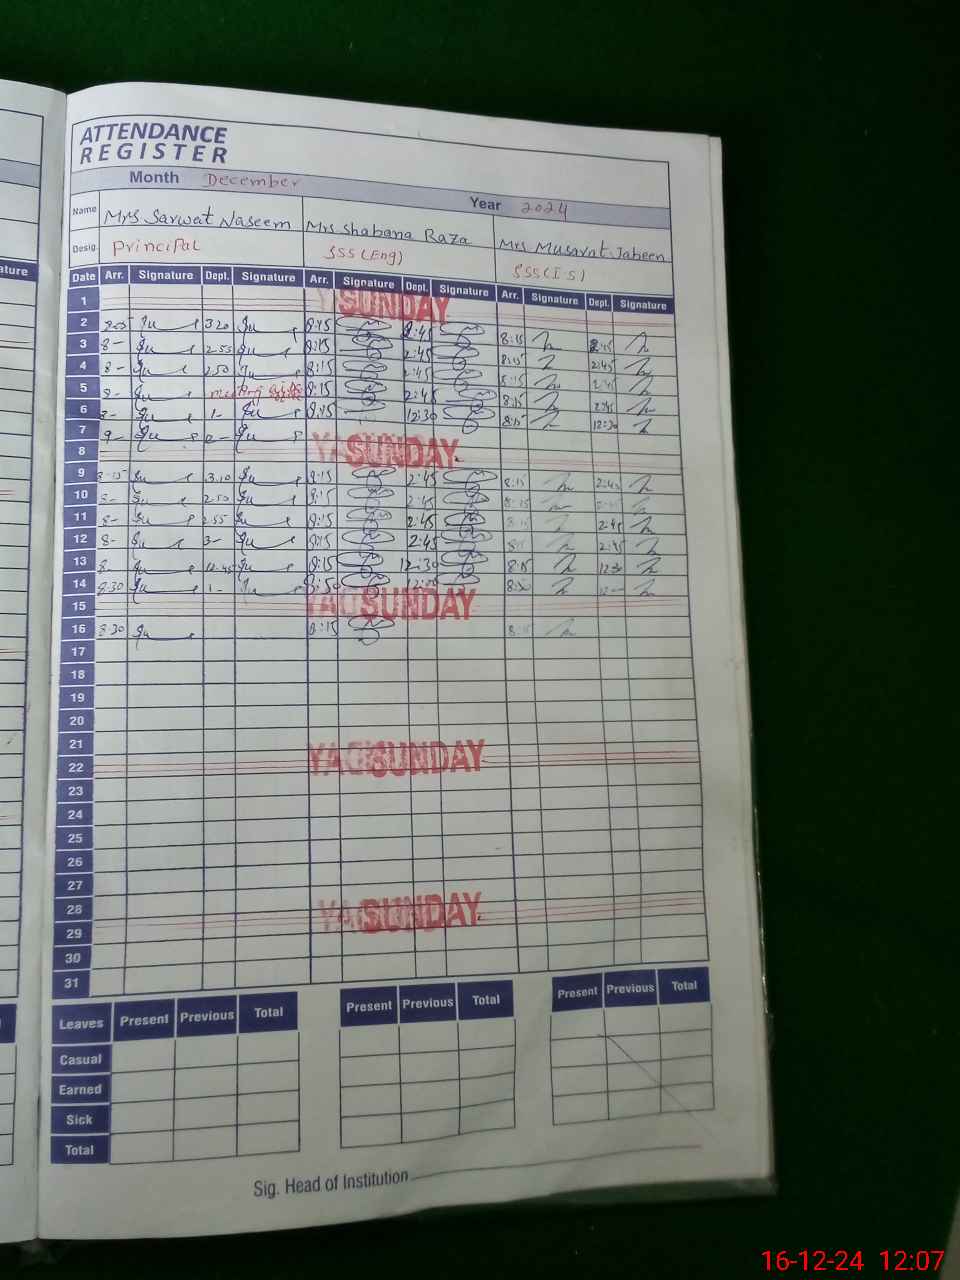 ATTENDANCE
REGISTER
Month December
Year 2024
Name Mrs Sarwat Naseem Mrs Shabana Raza Mrs Musarat Jabeen
Desig. Principal SSS (Eng) SSS (I.S)
ture
Date Arr. Signature Dept. Signature Arr. Signature Dept. Signature Arr. Signature Dept. Signature
1 SUNDAY
2 3.20 8:15 2:45 8:15 2:45
3 8- 2.55 8:15 2:45 8:15 2:45
4 8- 2.50 8:15 2:45 8:15 2:45
5 8- 8:15 2:45 8:15 2:45
6 8- 1- 8:15 12:30 8:15 12:30
7 9- 2-
8 SUNDAY
9 8-15 3.10 8:15 2:45 8:15 2:45
10 8- 2.50 8:15 2:45 8:15
11 8- 2.55 8:15 2:45 8:15 2:45
12 8- 3- 8:15 2:45 2:45
13 8- 12.45 8:15 12:30 8:15 12:30
14 8.30 1- 8:50
15 SUNDAY
16 8.30 8:15 8:15
17
18
19
20
21
22 SUNDAY
23
24
25
26
27
28 SUNDAY
29
30
31
Leaves Present Previous Total Present Previous Total Present Previous Total
Casual
Earned
Sick
Total
Sig. Head of Institution
16-12-24 12:07